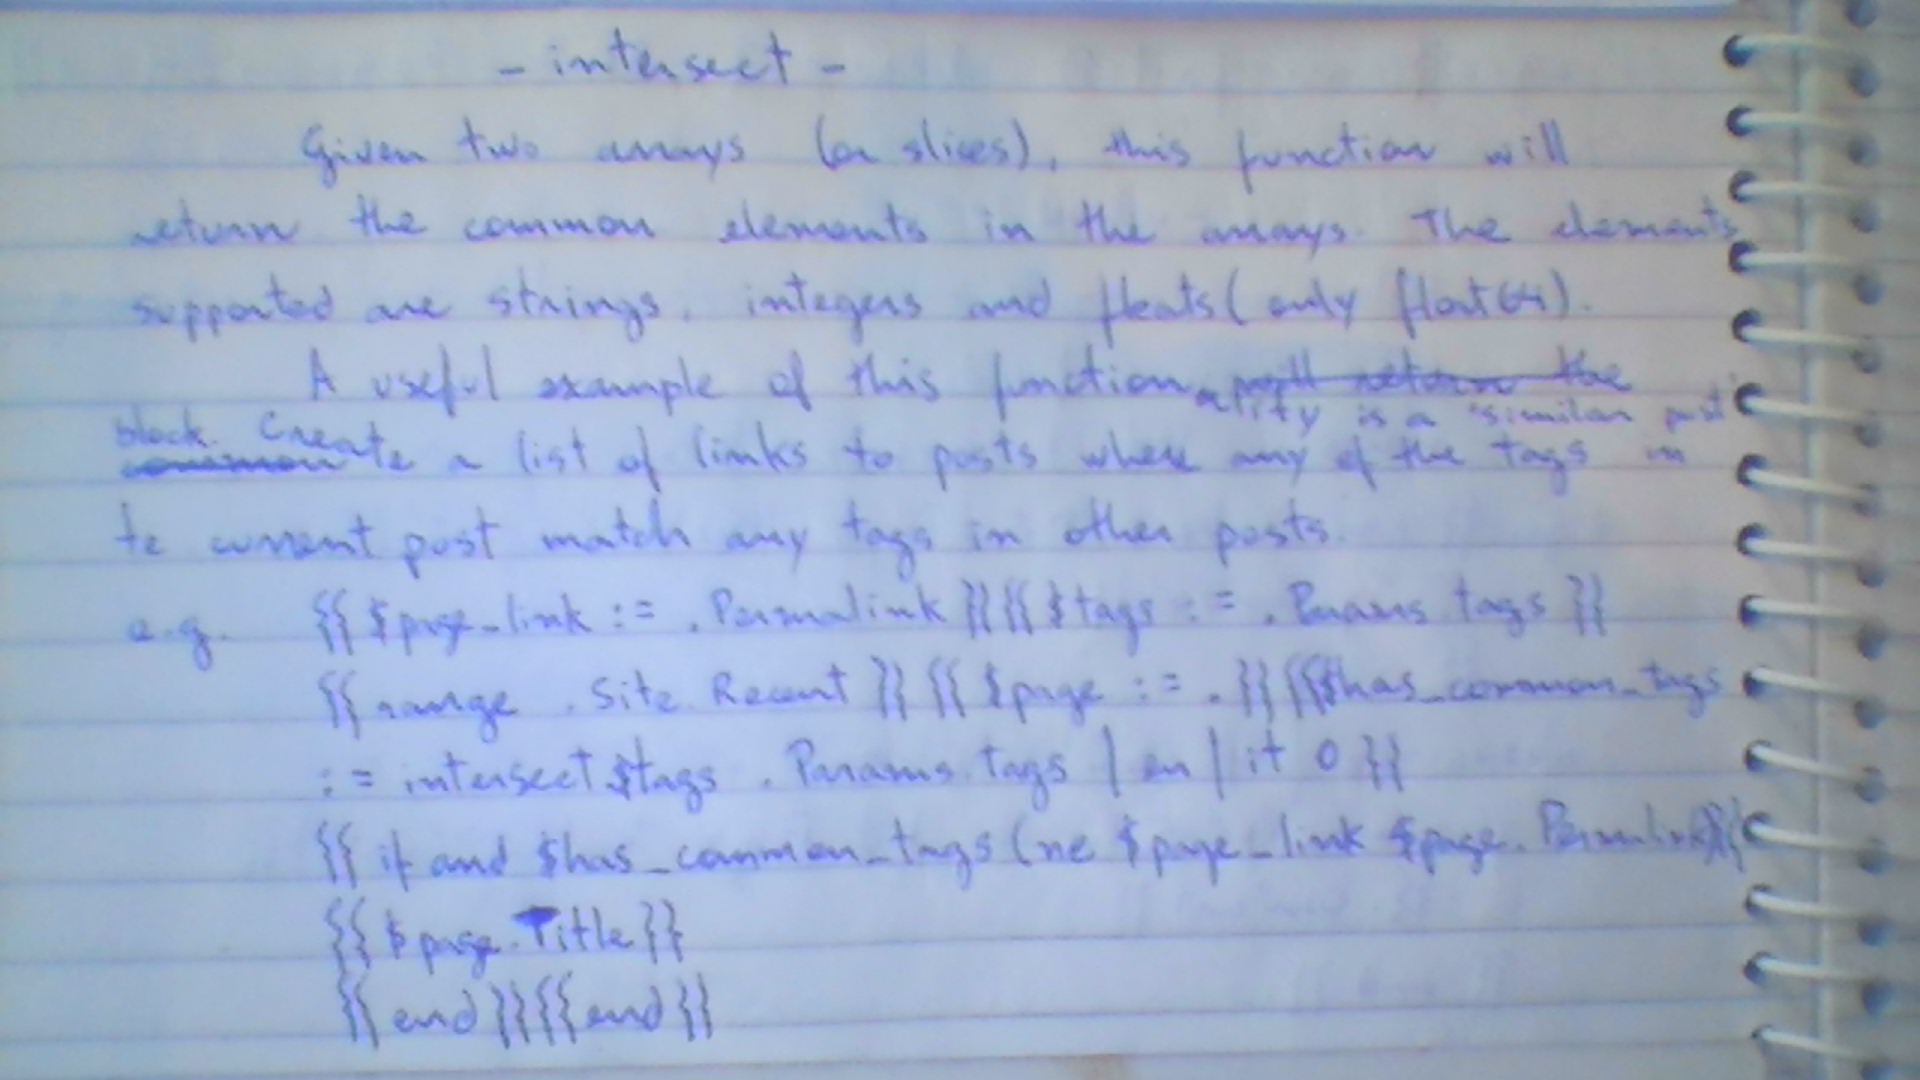 - intersect -
Given two arrays (or slices), this function will
return the common elements in the arrays. The elements
supported are strings, integers and floats (only float64).
A useful example of this function will return the
ality is a "similar post"
block. Create
common te a list of links to posts where any of the tags in
te current post match any tags in other posts.
e.g. {{ $page_link := .Permalink }}{{ $tags := .Params.tags }}
{{ range .Site.Recent }}{{ $page := . }}{{ $has_common_tags
:= intersect $tags .Params.tags | en | it 0 }}
{{ if and $has_common_tags (ne $page_link $page.Permalink)}}
{{ $page.Title }}
{{ end }}{{ end }}